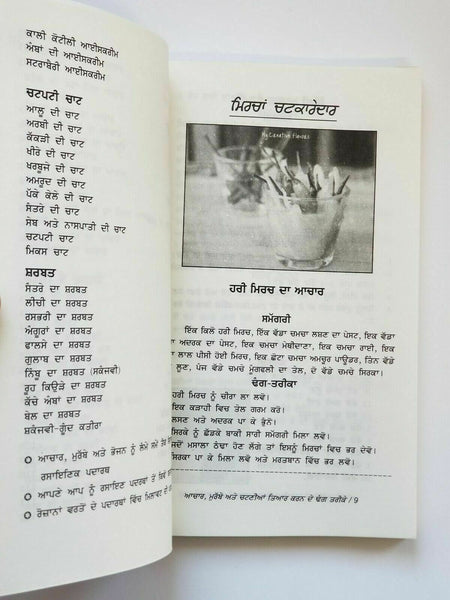 ਕਾਲੀ ਕੋਟੀਲੀ ਆਈਸਕਰੀਮ
ਅੰਬਾਂ ਦੀ ਆਈਸਕਰੀਮ
ਸਟਰਾਬੈਰੀ ਆਈਸਕਰੀਮ
ਚਟਪਟੀ ਚਾਟ
ਆਲੂ ਦੀ ਚਾਟ
ਅਰਬੀ ਦੀ ਚਾਟ
ਕੱਕੜੀ ਦੀ ਚਾਟ
ਖੀਰੇ ਦੀ ਚਾਟ
ਖਰਬੂਜੇ ਦੀ ਚਾਟ
ਅਮਰੂਦ ਦੀ ਚਾਟ
ਪੱਕੇ ਕੇਲੇ ਦੀ ਚਾਟ
ਸੰਤਰੇ ਦੀ ਚਾਟ
ਸੇਬ ਅਤੇ ਨਾਸਪਾਤੀ ਦੀ ਚਾਟ
ਚਟਪਟੀ ਚਾਟ
ਮਿਕਸ ਚਾਟ
ਸ਼ਰਬਤ
ਸੰਤਰੇ ਦਾ ਸ਼ਰਬਤ
ਲੀਚੀ ਦਾ ਸ਼ਰਬਤ
ਰਸਭਰੀ ਦਾ ਸ਼ਰਬਤ
ਅੰਗੂਰਾਂ ਦਾ ਸ਼ਰਬਤ
ਫਾਲਸੇ ਦਾ ਸ਼ਰਬਤ
ਗੁਲਾਬ ਦਾ ਸ਼ਰਬਤ
ਨਿੰਬੂ ਦਾ ਸ਼ਰਬਤ (ਸਕੰਜਵੀ)
ਰੂਹ ਕਿਉੜੇ ਦਾ ਸ਼ਰਬਤ
ਕੱਚੇ ਅੰਬਾਂ ਦਾ ਸ਼ਰਬਤ
ਬੇਲ ਦਾ ਸ਼ਰਬਤ
ਸ਼ਕੰਜਵੀ-ਗੂੰਦ ਕਤੀਰਾ
ਆਚਾਰ, ਮੁਰੱਬੇ ਅਤੇ ਭੋਜਨ ਨੂੰ ਲੰਮੇ ਸਮੇਂ ਤੱਕ
ਰਸਾਇਣਿਕ ਪਦਾਰਥ
ਆਪਣੇ ਆਪ ਨੂੰ ਰਸਾਇਣ ਪਦਰਥਾਂ ਤੋਂ ਕਿਵੇਂ
ਰੋਜ਼ਾਨਾ ਵਰਤੋਂ ਦੇ ਪਦਾਰਥਾਂ ਵਿੱਚ ਮਿਲਾਵਟ ਦੀ
ਮਿਰਚਾਂ ਚਟਕਾਰੇਦਾਰ
My Creative Flavors
ਹਰੀ ਮਿਰਚ ਦਾ ਆਚਾਰ
ਸਮੱਗਰੀ
ਇੱਕ ਕਿਲੋ ਹਰੀ ਮਿਰਚ, ਇੱਕ ਵੱਡਾ ਚਮਚਾ ਲਸਣ ਦਾ ਪੇਸਟ, ਇਕ ਵੱਡਾ
ਅਦਰਕ ਦਾ ਪੇਸਟ, ਇਕ ਚਮਚਾ ਮੇਥੀਦਾਣਾ, ਇਕ ਚਮਚਾ ਰਾਈ, ਇਕ
ਲਾਲ ਪੀਸੀ ਹੋਈ ਮਿਰਚ, ਇਕ ਛੋਟਾ ਚਮਚਾ ਅਮਚੂਰ ਪਾਊਡਰ, ਤਿੰਨ ਵੱਡੇ
ਲੂਣ, ਪੰਜ ਵੱਡੇ ਚਮਚੇ ਮੂੰਗਫਲੀ ਦਾ ਤੇਲ, ਦੋ ਵੱਡੇ ਚਮਚੇ ਸਿਰਕਾ।
ਢੰਗ-ਤਰੀਕਾ
ਹਰੀ ਮਿਰਚ ਨੂੰ ਚੀਰਾ ਲਾ ਲਵੋ।
ਇਕ ਕੜਾਹੀ ਵਿਚ ਤੇਲ ਗਰਮ ਕਰੋ।
ਲਸਣ ਅਤੇ ਅਦਰਕ ਪਾ ਕੇ ਭੁੰਨੋ।
ਸਿਰਕੇ ਨੂੰ ਛੱਡਕੇ ਬਾਕੀ ਸਾਰੀ ਸਮੱਗਰੀ ਮਿਲਾ ਲਵੋ।
ਜਦੋਂ ਮਸਾਲਾ ਠੰਢਾ ਹੋਣ ਲੱਗੇ ਤਾਂ ਇਸਨੂੰ ਮਿਰਚਾਂ ਵਿਚ ਭਰ ਦੇਵੋ।
ਸਿਰਕਾ ਪਾ ਕੇ ਮਿਲਾ ਲਵੋ ਅਤੇ ਮਰਤਬਾਨ ਵਿੱਚ ਭਰ ਲਵੋ।
ਆਚਾਰ, ਮੁਰੱਬੇ ਅਤੇ ਚਟਣੀਆਂ ਤਿਆਰ ਕਰਨ ਦੇ ਢੰਗ ਤਰੀਕੇ / 9